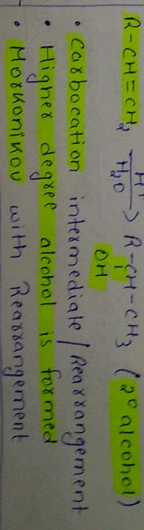 R-CH=CH₂ —H⁺/H₂O→ R-CH-CH₃ (2° alcohol)
OH
• Carbocation intermediate / Rearrangement
• Higher degree alcohol is formed
• Markonikov with Rearrangement